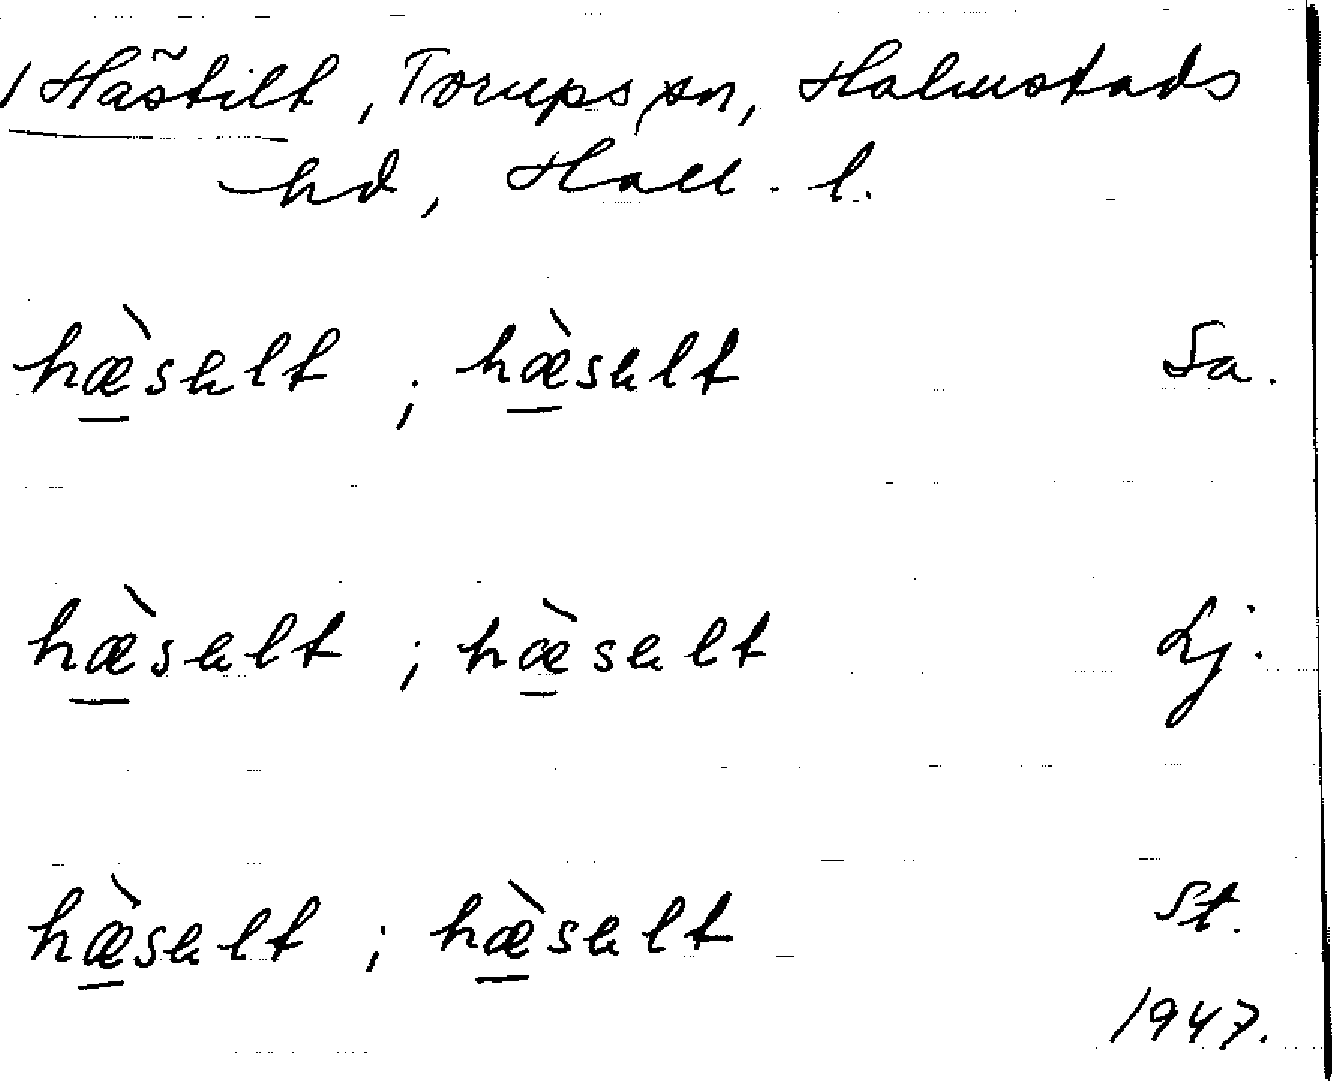 1 Hästilt, Torups sn, Halmstads
hd, Hall. l.
hæ̀salt ; hæ̀salt Sa.
hæ̀salt ; hæ̀salt Lj.
hæ̀salt ; hæ̀salt St.
1947.